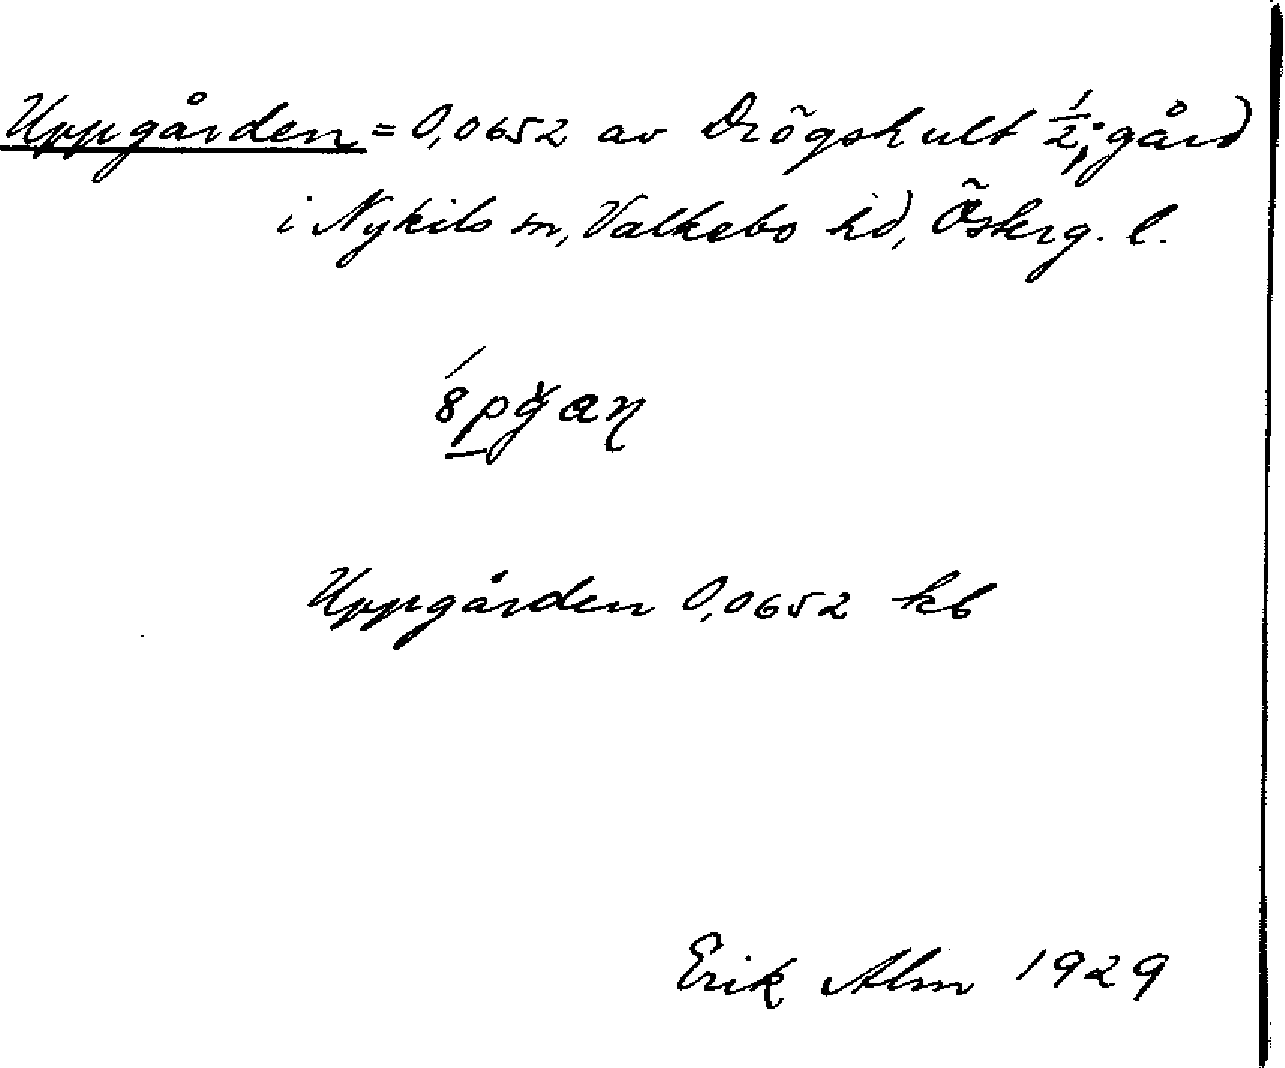 Uppgården = 0,0652 av Drögshult 1/2; gård
i Nykils sn, Valkebo hd, Österg. l.
Uppgården 0,0652 kb
Erik Alm 1929